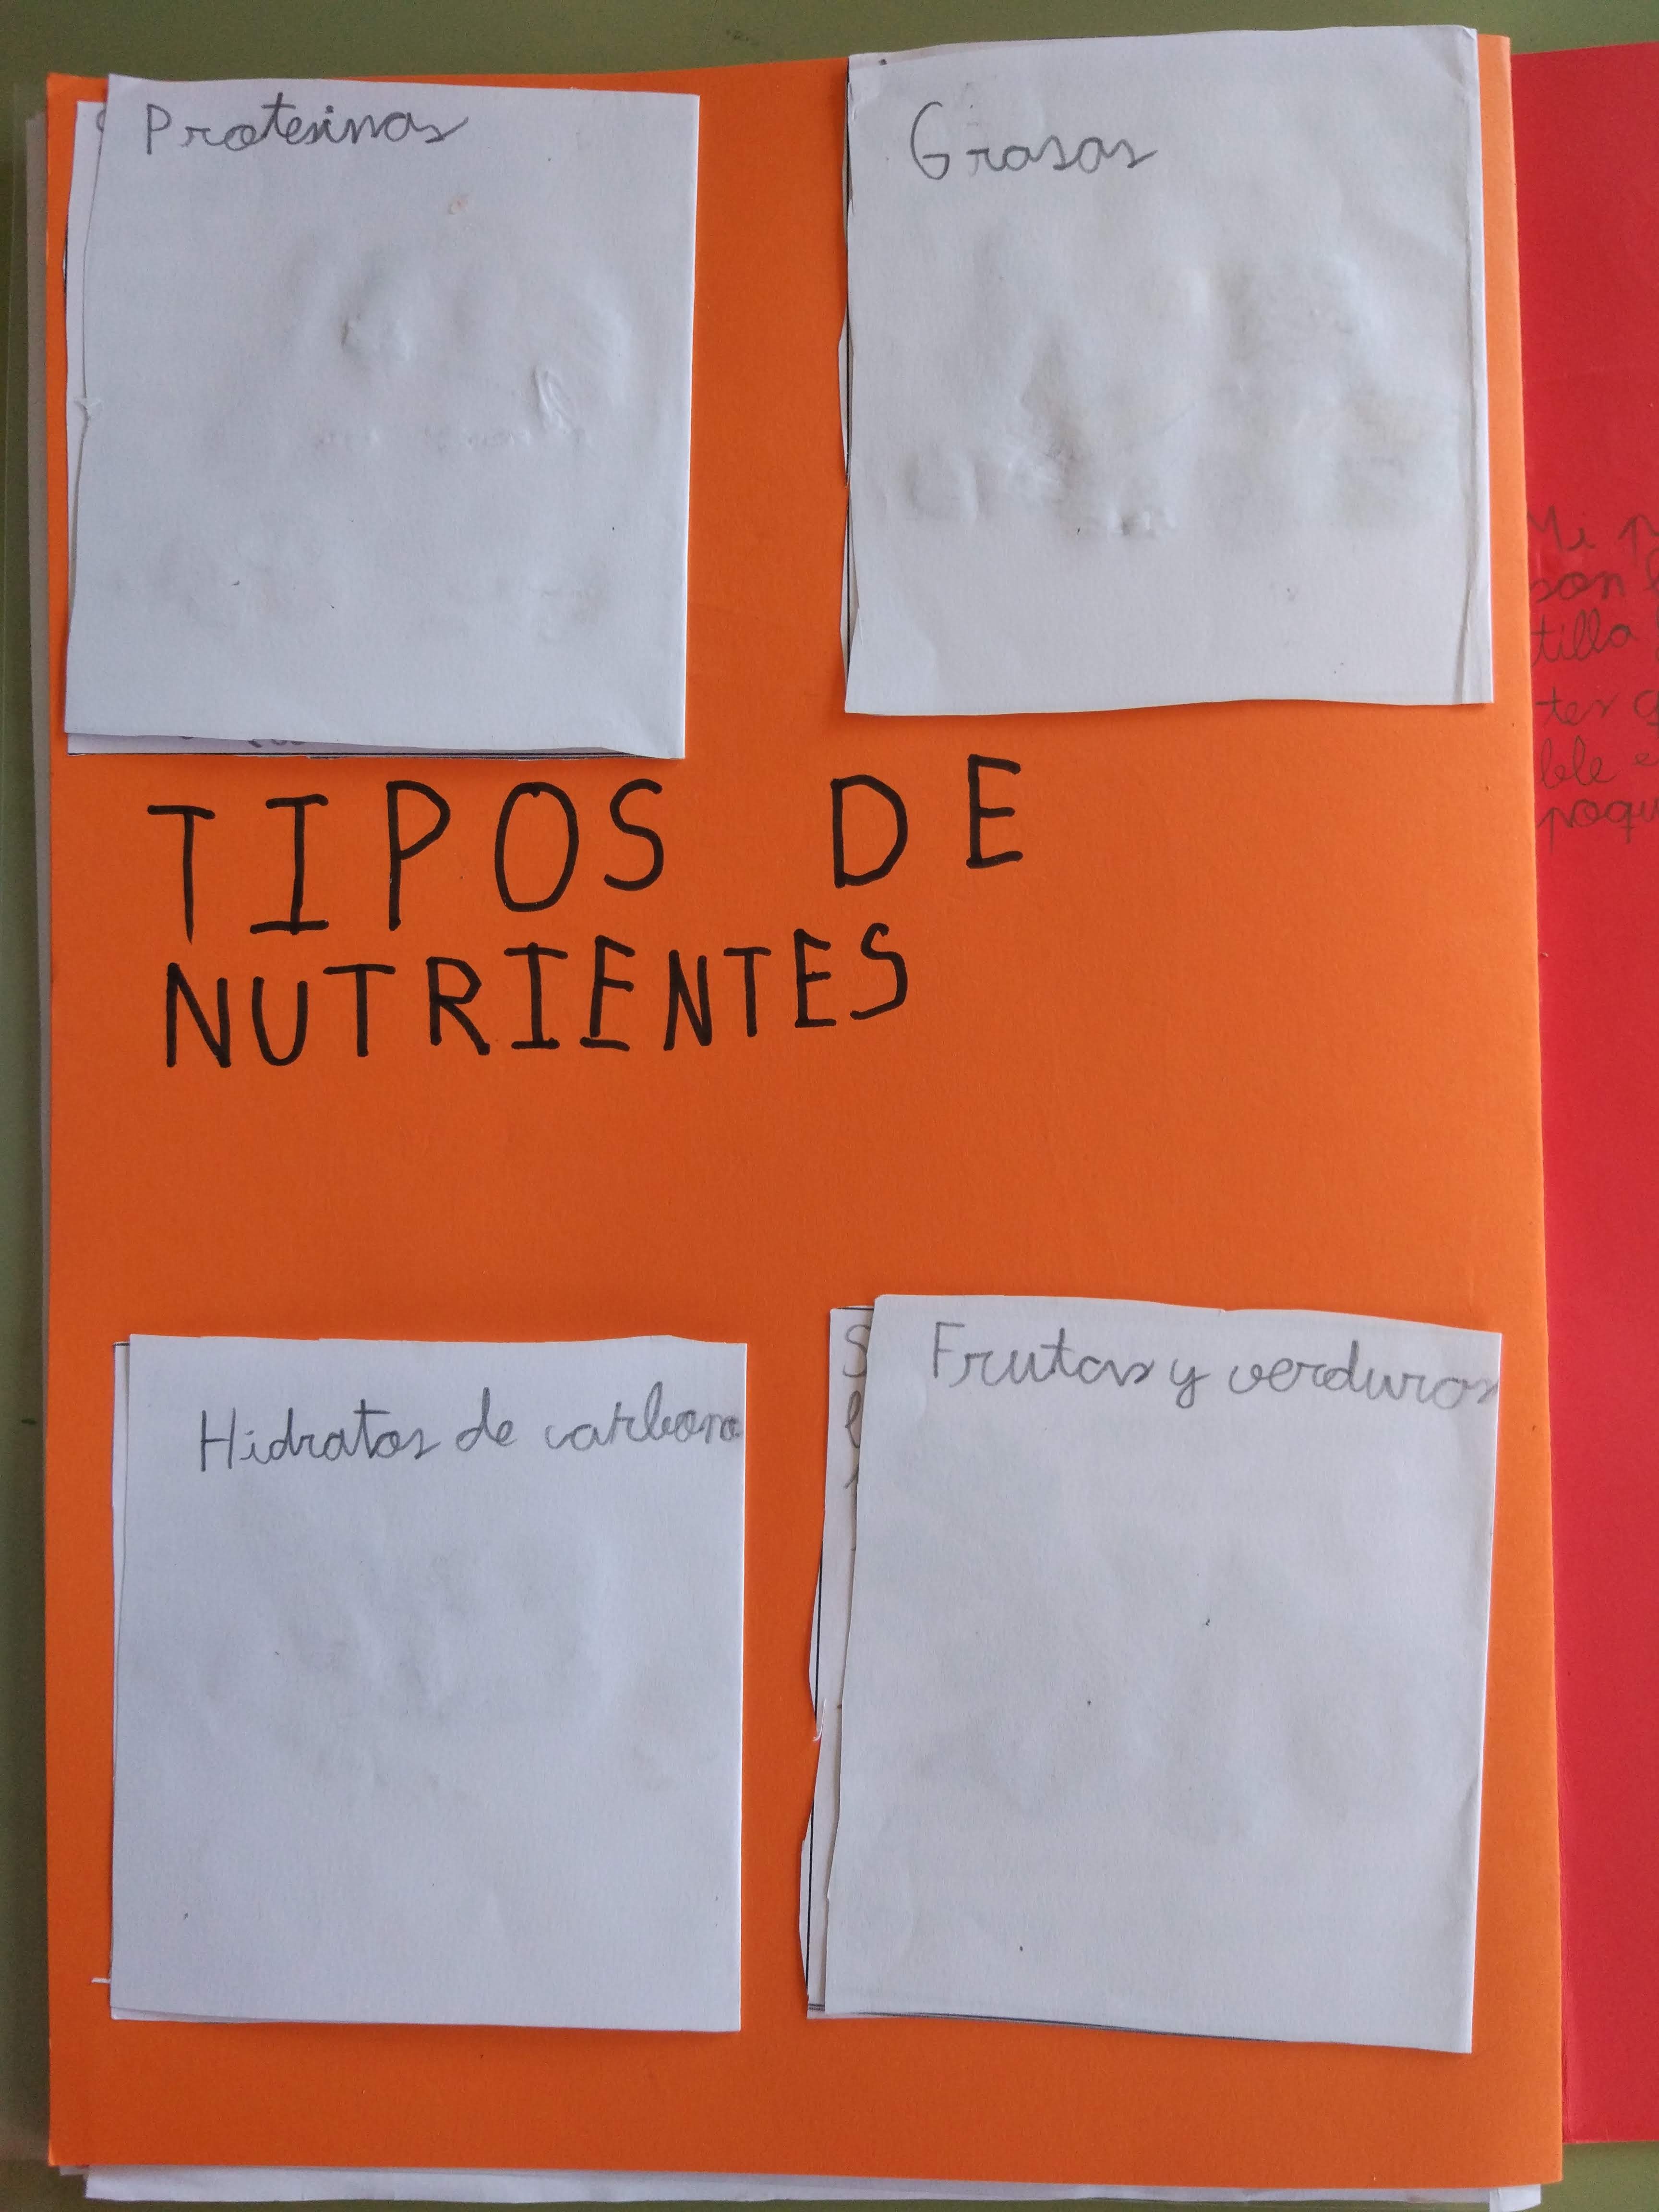 Protesinas
Grasas
TIPOS DE
NUTRIENTES
Hidratos de carbono
Frutas y verduras
Mi
son
tilla
ter
ble